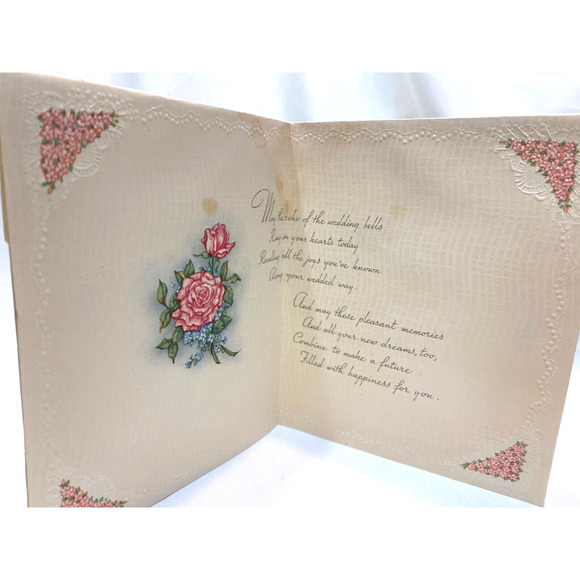 May the echo of the wedding bells
Ring in your hearts today
Recalling all the joys you've known
Along your wedded way.
And may these pleasant memories
And all your new dreams, too,
Combine to make a future
Filled with happiness for you.